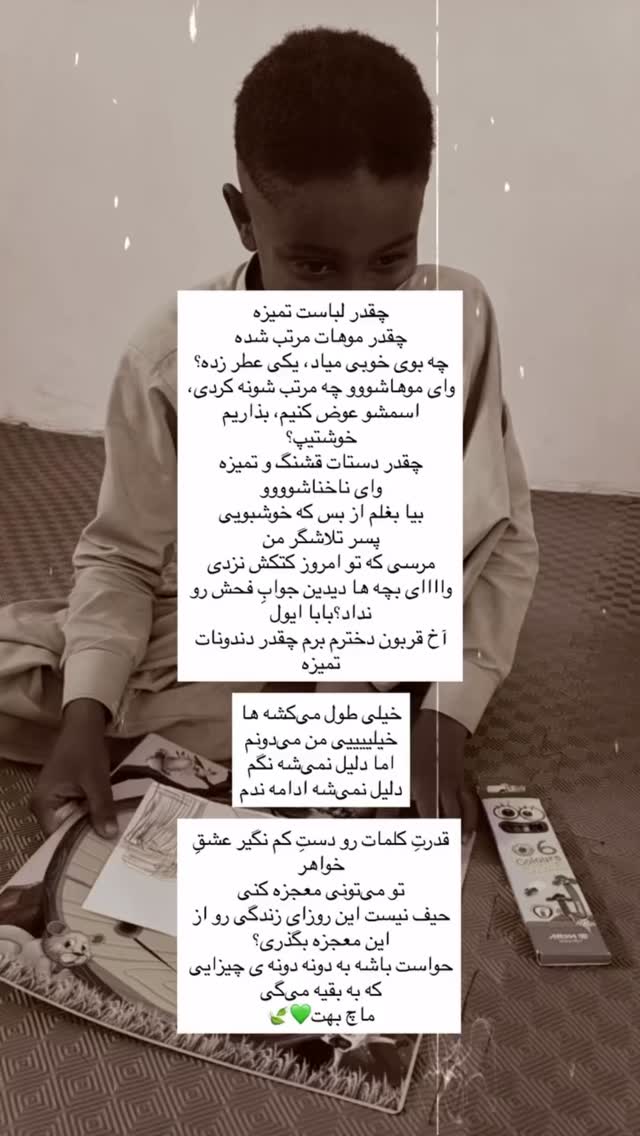 چقدر لباست تمیزه
چقدر موهات مرتب شده
چه بوی خوبی میاد، یکی عطر زده؟
وای موهاشووو چه مرتب شونه کردی،
اسمشو عوض کنیم، بذاریم
خوشتیپ؟
چقدر دستات قشنگ و تمیزه
وای ناخناشوووو
بیا بغلم از بس که خوشبویی
پسر تلاشگر من
مرسی که تو امروز کتکش نزدی
واااای بچه ها دیدین جوابِ فحش رو
نداد؟بابا ایول
آخ قربون دخترم برم چقدر دندونات
تمیزه
خیلی طول می‌کشه ها
خیلیییییی من می‌دونم
اما دلیل نمی‌شه نگم
دلیل نمی‌شه ادامه ندم
قدرتِ کلمات رو دستِ کم نگیر عشقِ
خواهر
تو می‌تونی معجزه کنی
حیف نیست این روزای زندگی رو از
این معجزه بگذری؟
حواست باشه به دونه دونه ی چیزایی
که به بقیه می‌گی
ماچ بهت💚🍃
6
Colours